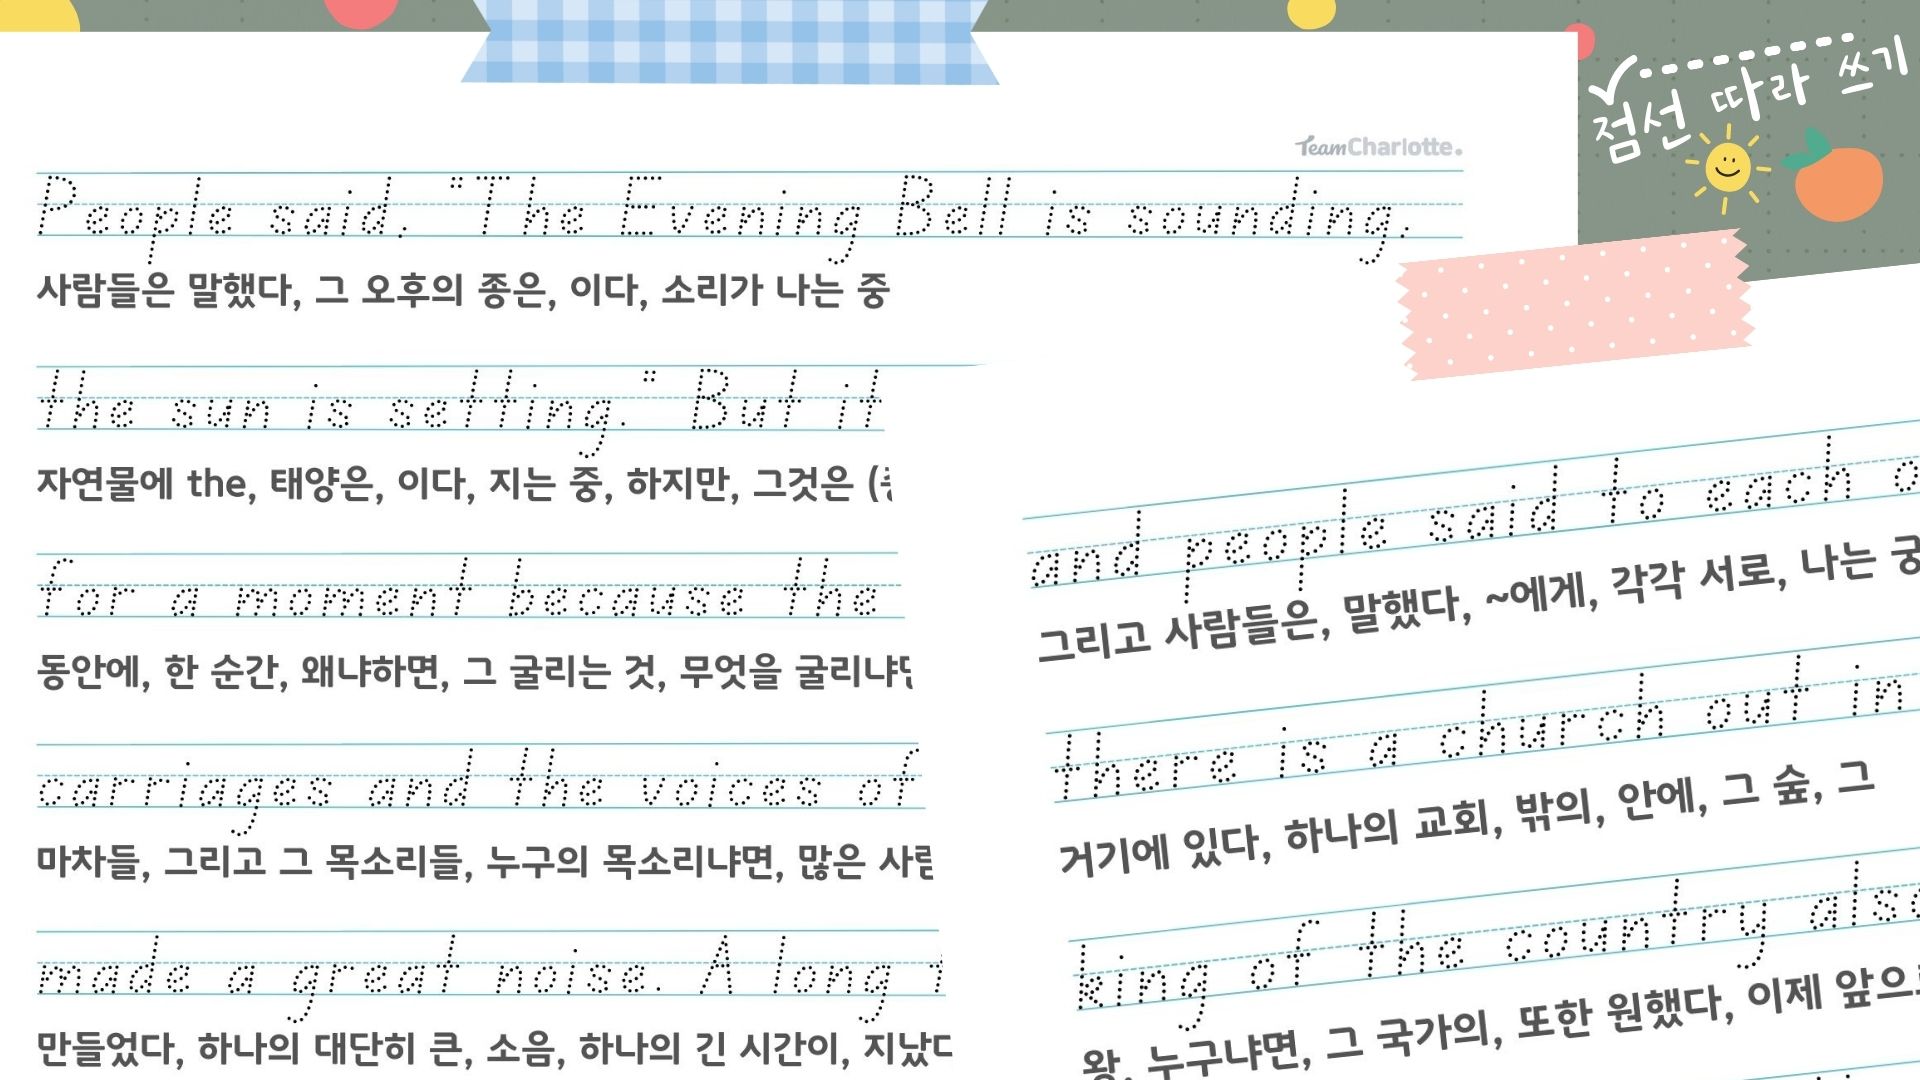 점선 따라 쓰기
TeamCharlotte.
People said, "The Evening Bell is sounding,
사람들은 말했다, 그 오후의 종은, 이다, 소리가 나는 중
the sun is setting." But it
자연물에 the, 태양은, 이다, 지는 중, 하지만, 그것은
for a moment because the
동안에, 한 순간, 왜냐하면, 그 굴리는 것, 무엇을 굴리냐면
carriages and the voices of
마차들, 그리고 그 목소리들, 누구의 목소리냐면, 많은
made a great noise. A long
만들었다, 하나의 대단히 큰, 소음, 하나의 긴 시간이,
and people said to each
그리고 사람들은, 말했다, ~에게, 각각 서로, 나는
there is a church out in
거기에 있다, 하나의 교회, 밖의, 안에, 그 숲, 그
king of the country also
왕, 누구냐면, 그 국가의, 또한 원했다, 이제